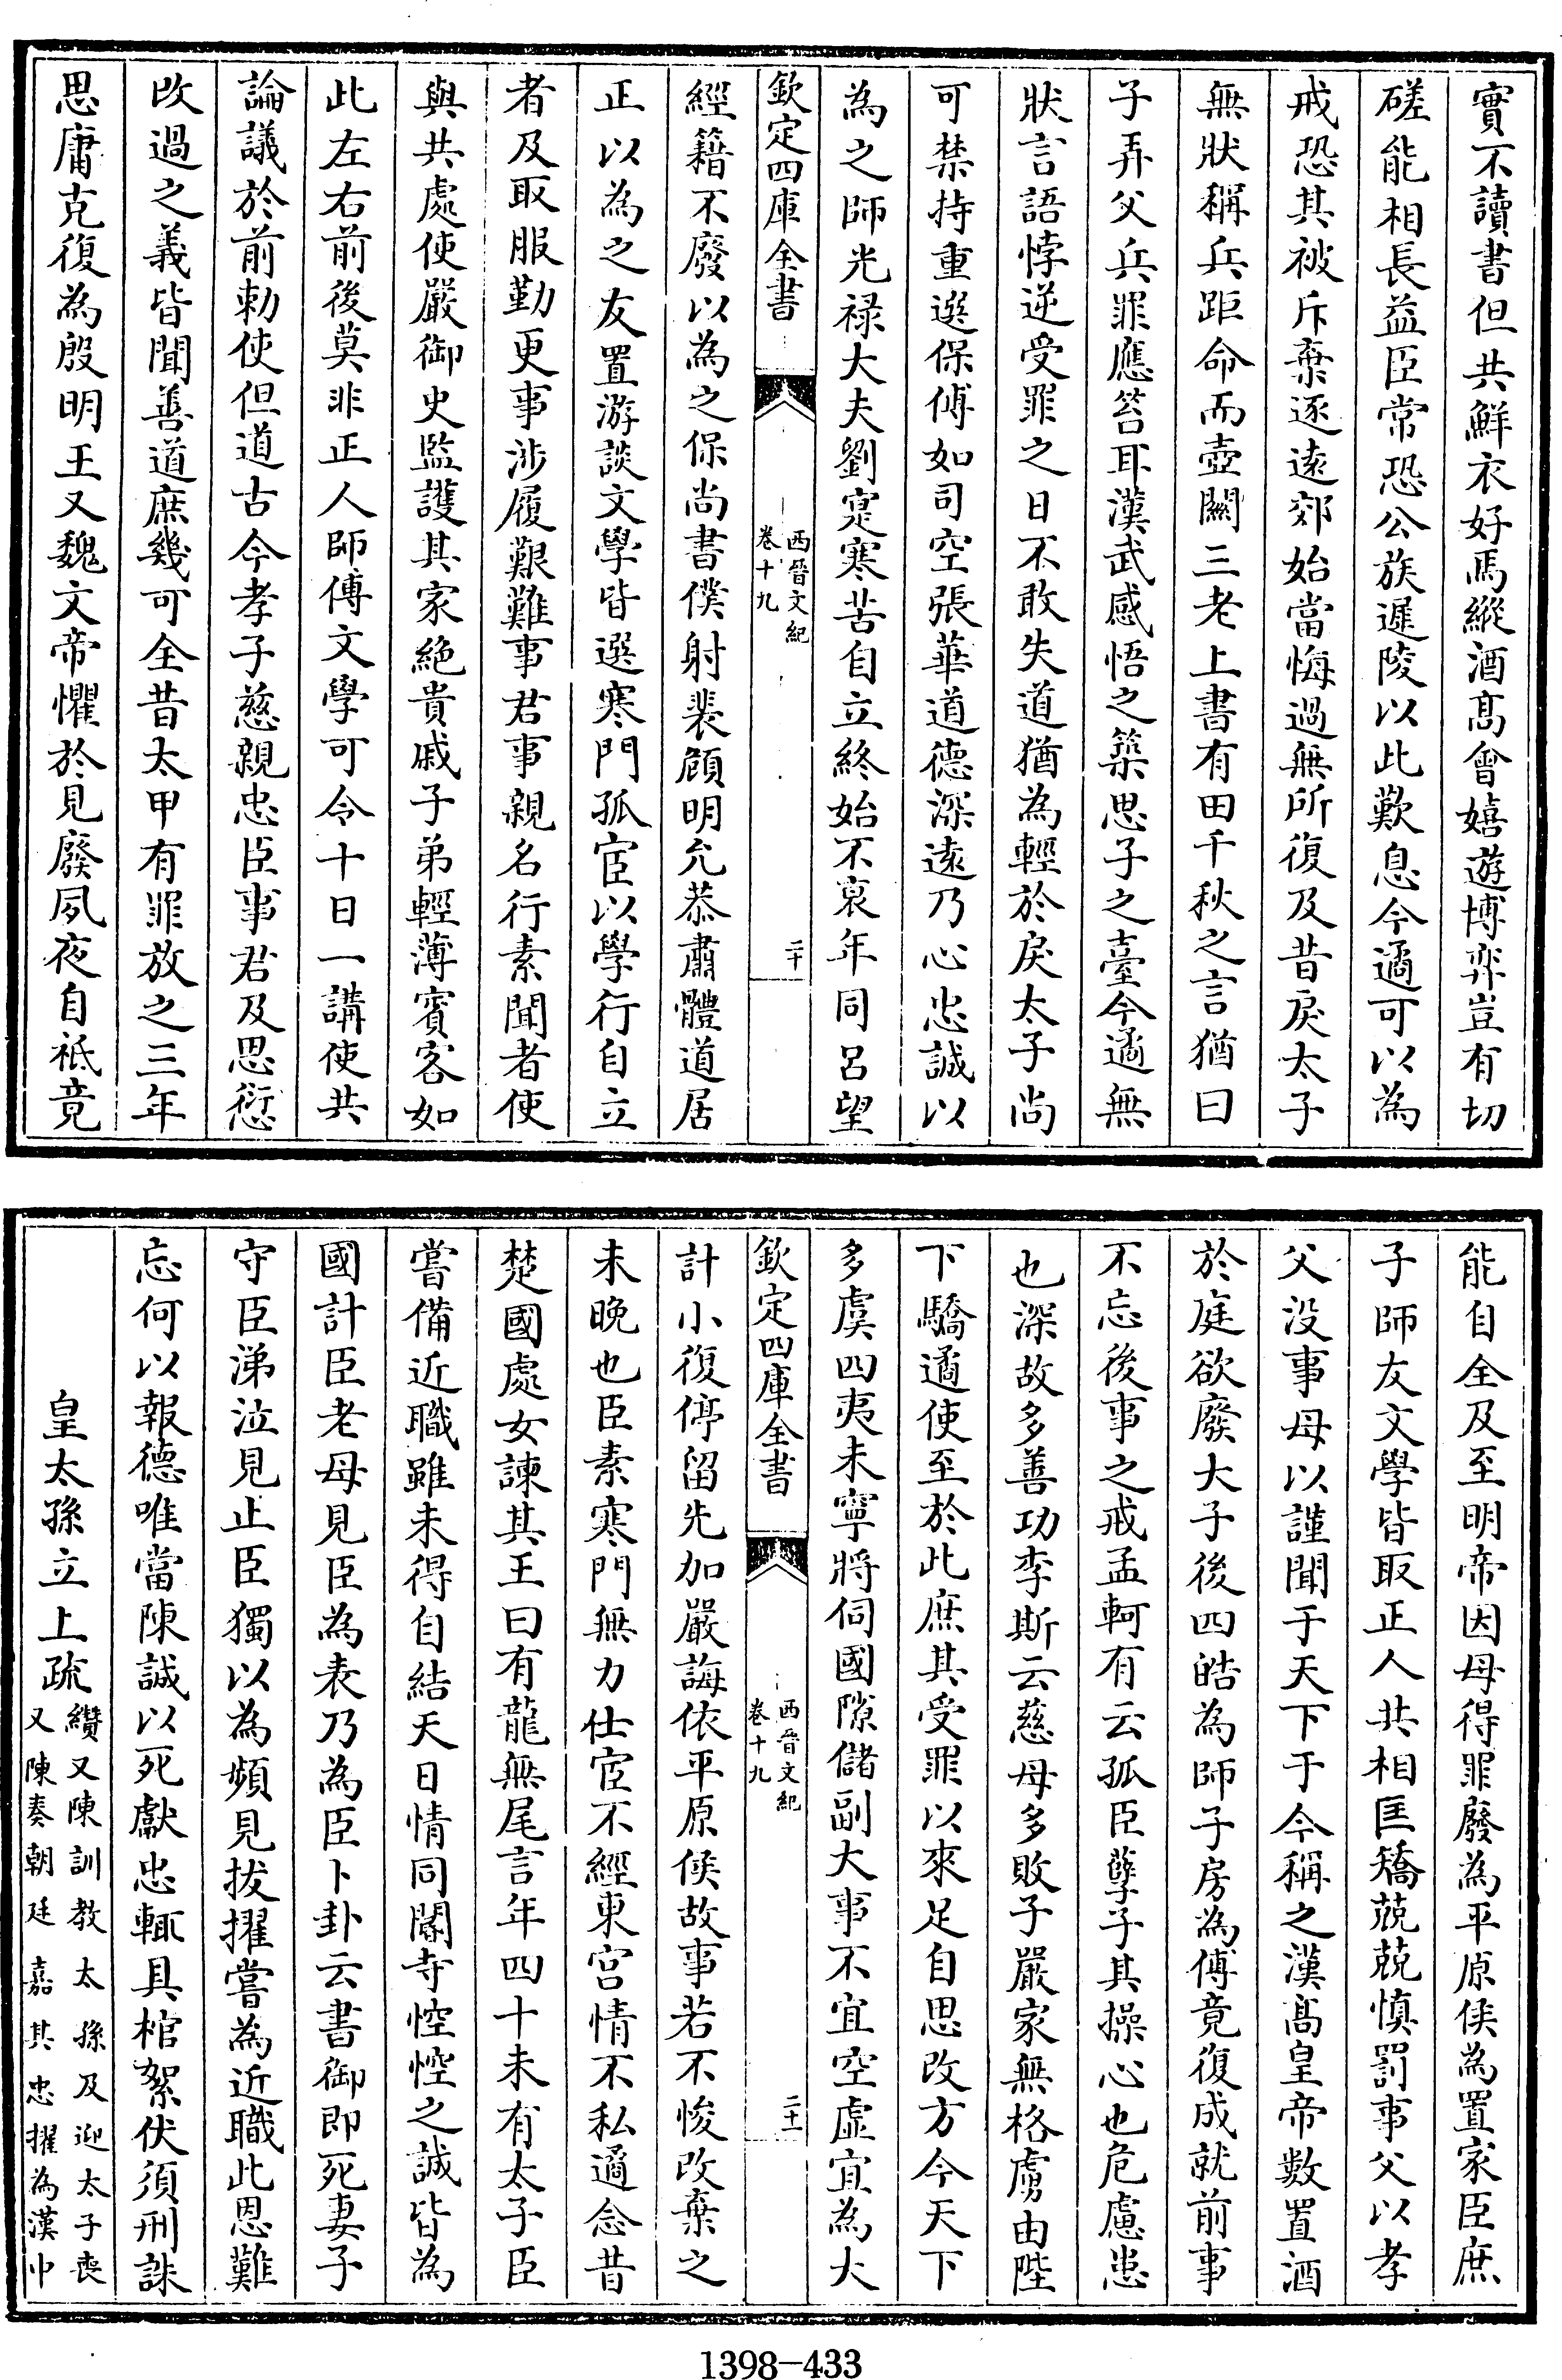 實不讀書但共鮮衣好馬縱酒髙㑹嬉遊博弈豈有切
磋能相長益臣常恐公族遲陵以此歎息今遹可以為
戒恐其被斥棄逐逺郊始當悔過無所復及昔戾太子
無狀稱兵距命而壺闗三老上書有田千秋之言猶曰
子弄父兵罪應笞耳漢武感悟之築思子之臺今遹無
狀言語悖逆受罪之日不敢失道猶為輕於戾太子尚
可禁持重選保傅如司空張華道德深逺乃心忠誠以
為之師光禄大夫劉寔寒苦自立終始不衰年同吕望
欽定四庫全書
西晉文紀
卷十九
二十
經籍不廢以為之保尚書僕射裴頠明允恭肅體道居
正以為之友置游談文學皆選寒門孤宦以學行自立
者及取服勤更事涉履艱難事君事親名行素聞者使
與共處使嚴御史監䕶其家絶貴戚子弟輕薄賓客如
此左右前後莫非正人師傅文學可令十日一講使共
論議於前勅使但道古今孝子慈親忠臣事君及思愆
改過之義皆聞善道庶幾可全昔太甲有罪放之三年
思庸克復為殷明王又魏文帝懼於見廢夙夜自祇竟
能自全及至明帝因母得罪廢為平原侯為置家臣庶
子師友文學皆取正人共相匡矯兢兢慎罰事父以孝
父没事母以謹聞于天下于今稱之漢髙皇帝數置酒
於庭欲廢大子後四皓為師子房為傅竟復成就前事
不忘後事之戒孟軻有云孤臣孽子其操心也危慮患
也深故多善功李斯云慈母多敗子嚴家無格虜由陛
下驕遹使至於此庶其受罪以來足自思改方今天下
多虞四夷未寧將伺國隙儲副大事不宜空虚宜為大
欽定四庫全書
西晉文紀
卷十九
二十一
計小復停留先加嚴誨依平原侯故事若不悛改棄之
未晚也臣素寒門無力仕宦不經東宫情不私遹念昔
楚國處女諫其王曰有龍無尾言年四十未有太子臣
嘗備近職雖未得自結天日情同閽寺悾悾之誠皆為
國計臣老母見臣為表乃為臣卜卦云書御即死妻子
守臣涕泣見止臣獨以為頻見拔擢嘗為近職此恩難
忘何以報德唯當陳誠以死獻忠輒具棺絮伏須刑誅
皇太孫立上疏
纘又陳訓教太孫及迎太子喪
又陳奏朝廷嘉其忠擢為漢中
1398-433